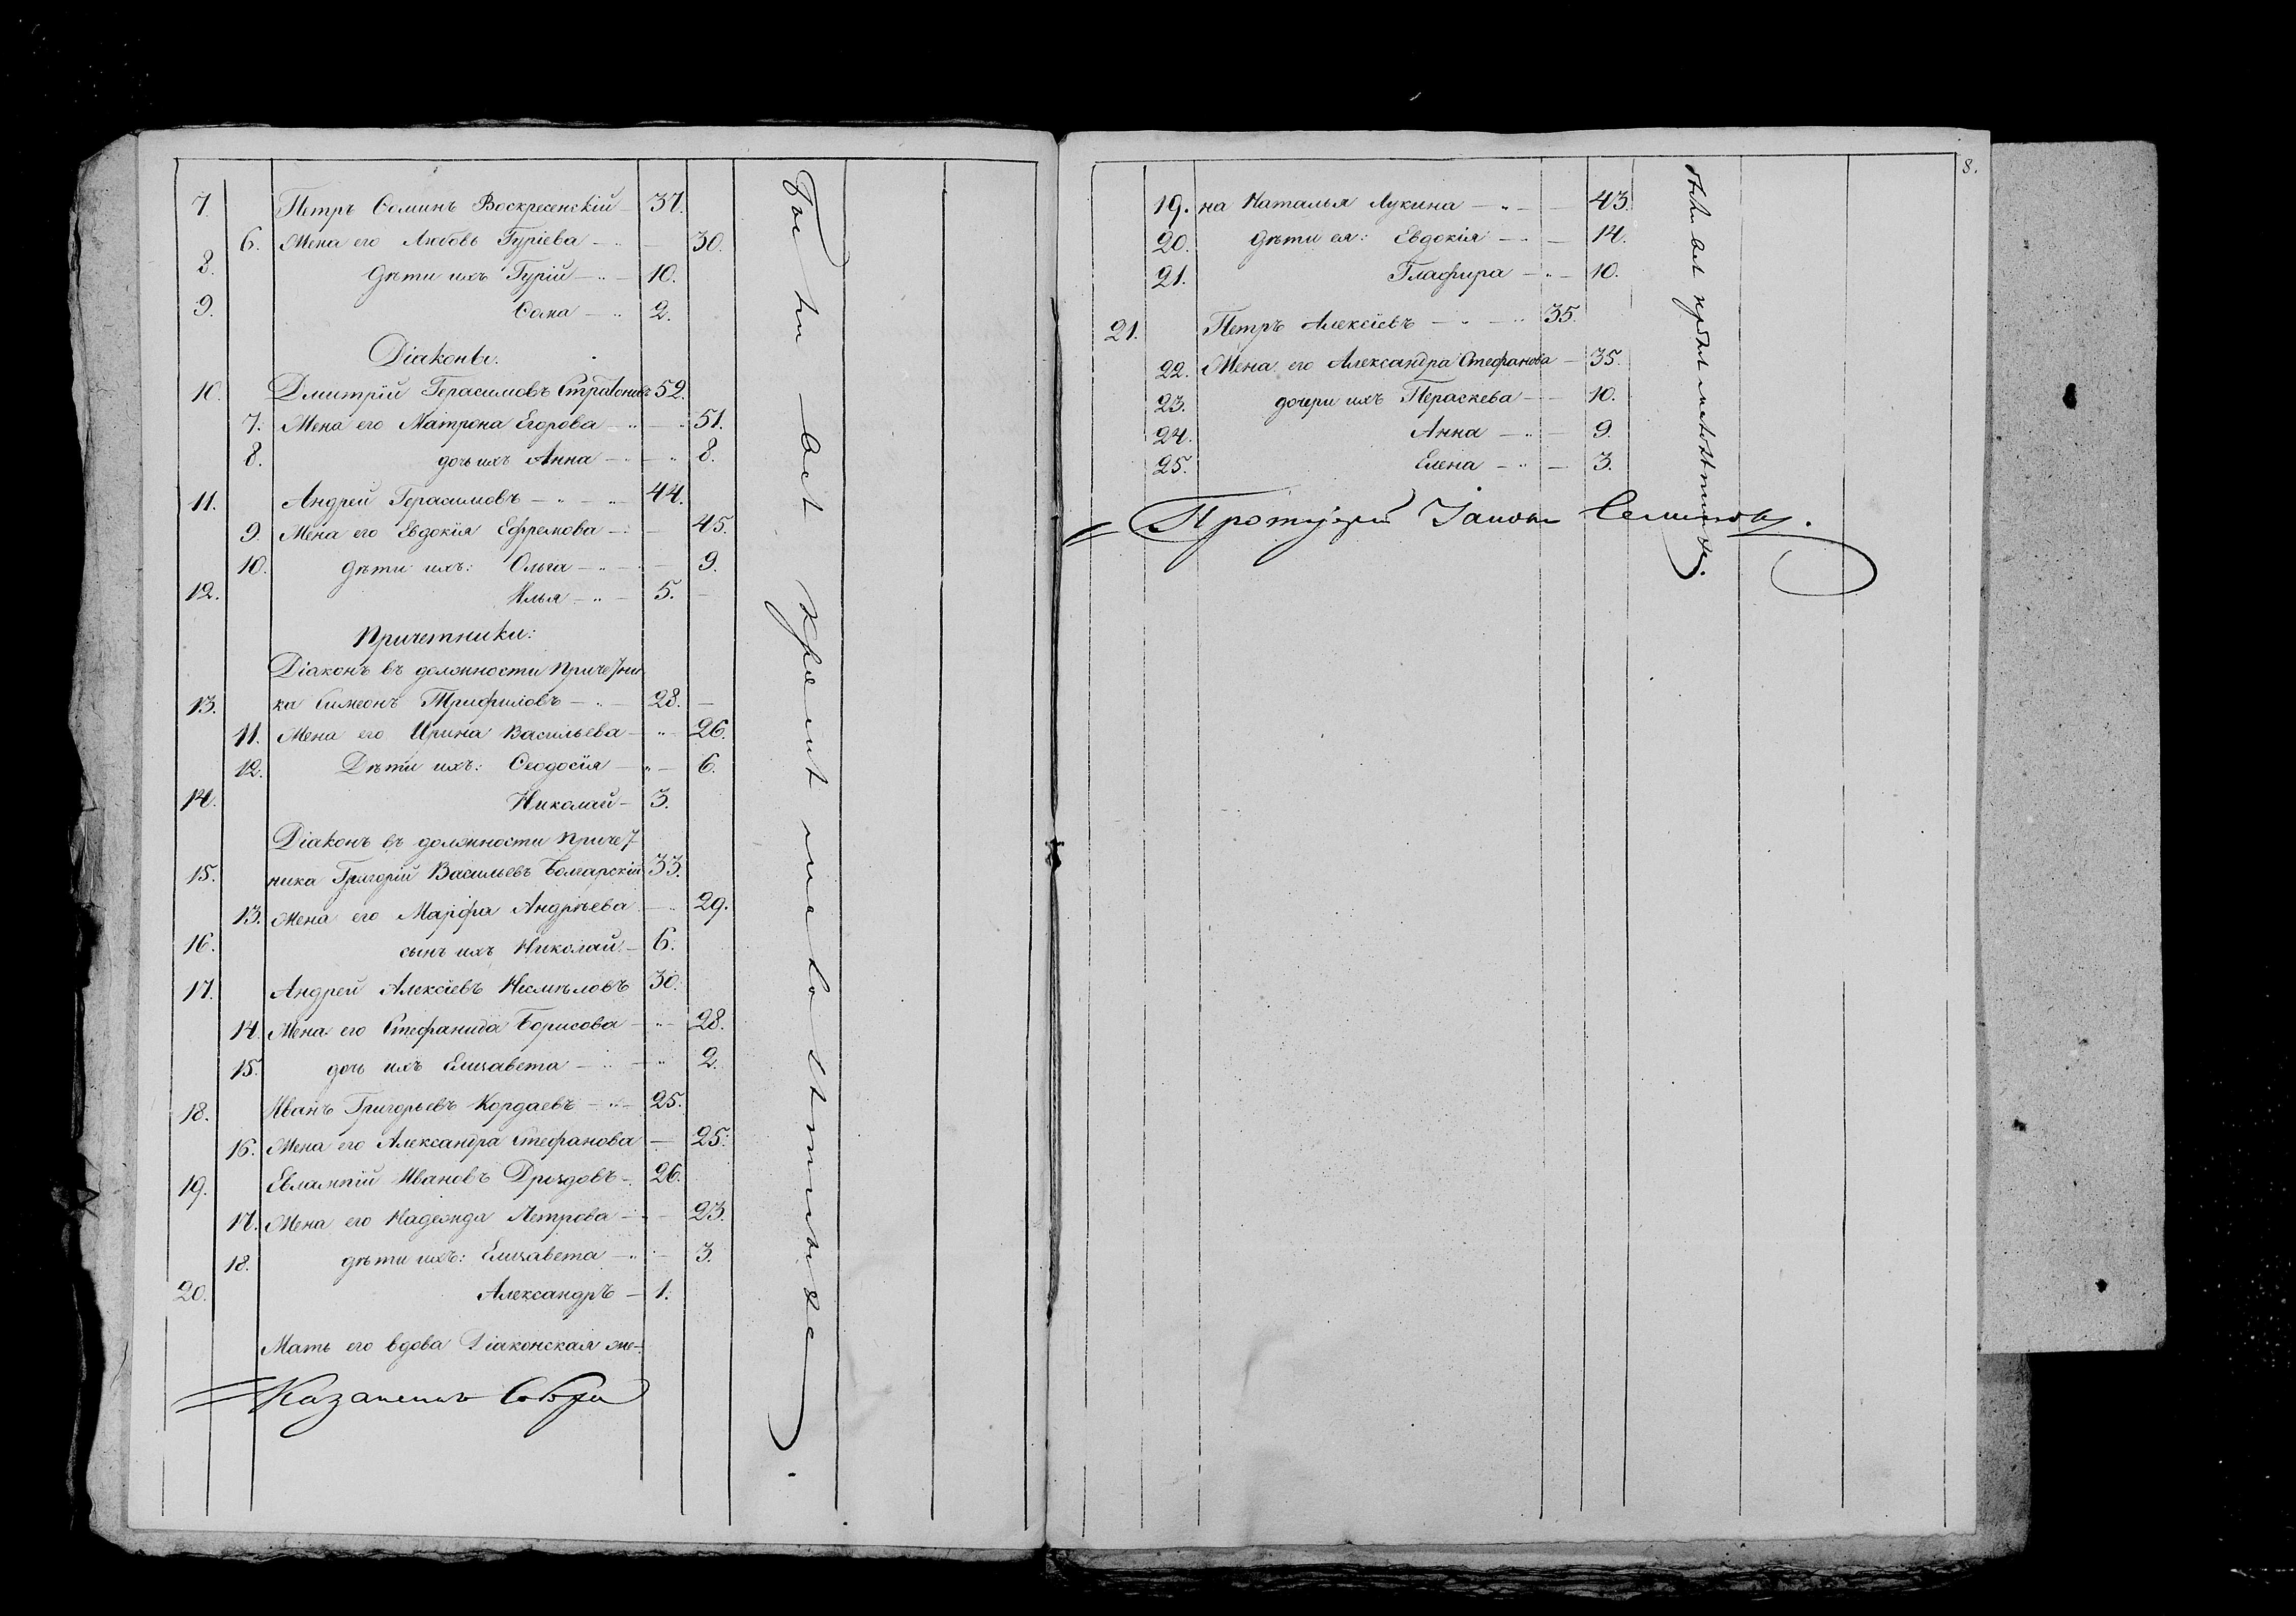 7. Петръ Ѳоминъ Воскресенскій — 37.
6. Жена его Любовь Гуріева — 30.
8. дѣти ихъ Гурій — 10.
9. Ѳома — 2.
Діаконы.
10. Дмитрій Герасимовъ Стратоновъ 52.
7. Жена его Матрона Егорова — 51.
8. дочь ихъ Анна — 8.
11. Андрей Герасимовъ — 44.
9. Жена его Евдокія Ефремова — 45.
10. дѣти ихъ: Ольга — 9.
12. Илья — 5.
Причетники:
Діаконъ въ должности Причетни
13. ка Симеонъ Трифиловъ — 28.
11. Жена его Ирина Васильева — 26.
12. Дѣти ихъ: Ѳеодосія — 6.
14. Николай — 3.
Діаконъ въ должности Причет
15. ника Григорій Васильевъ Болгарскій 33.
13. Жена его Марфа Андрѣева — 29.
16. сынъ ихъ Николай — 6.
17. Андрей Алексіевъ Несмѣловъ 30.
14. Жена его Стефанида Борисова — 28.
15. дочь ихъ Елисавета — 2.
18. Иванъ Григорьевъ Кордаевъ — 25.
16. Жена его Александра Стефанова — 25.
19. Евлампій Ивановъ Дроздовъ — 26.
17. Жена его Надежда Петрова — 23.
18. дѣти ихъ: Елисавета — 3.
20. Александръ — 1.
Мать его вдова Діаконская же-
Казанскаго Собора
8.
19. на Наталья Лукина — 43.
20. дѣти ея: Евдокія — 14.
21. Глафира — 10.
21. Петръ Алексіевъ — 35.
22. Жена его Александра Стефанова — 35.
23. дочери ихъ Параскева — 10.
24. Анна — 9.
25. Елена — 3.
Протоіерей Іаковъ